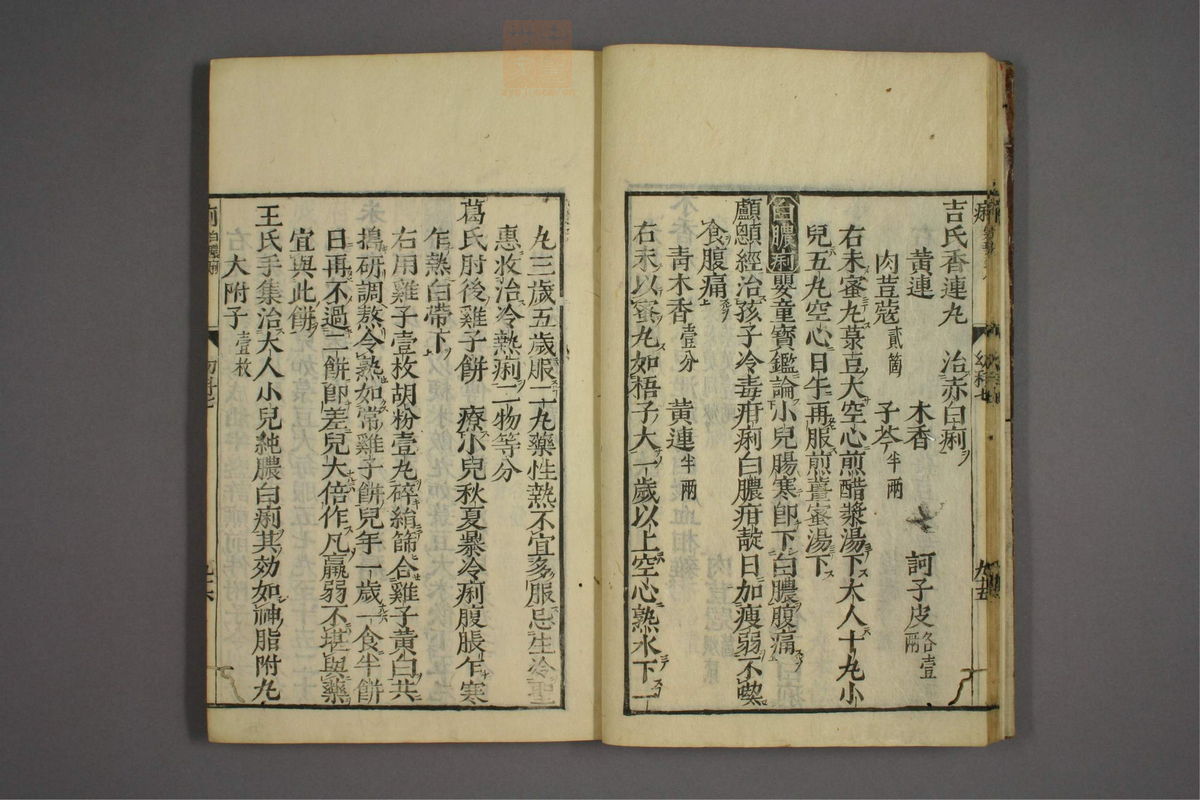 吉氏香連丸　治赤白痢
黄連　木香　訶子皮各壹兩
肉荳蔲貳箇　子芩半兩
右末蜜丸菉豆大空心煎醋漿湯下大人十丸小
兒五丸空心日午再服煎薑蜜湯下
白膿痢 嬰童寶鑑論小兒腸寒卽下白膿腹痛
顱顖經治孩子冷毒疳痢白膿疳䘌日加瘦弱不喫
食腹痛
青木香壹分　黄連半兩
右末以蜜丸如梧子大一歲以上空心熟水下一
丸三歲五歲服二丸藥性熱不宜多服忌生冷聖
惠救治冷熱痢二物等分
葛氏肘後雞子餅　療小兒秋夏暴冷痢腹脹乍寒
乍熱白帶下
右用雞子壹枚胡粉壹丸碎絹篩合雞子黄白共
搗研調熬令熟如常雞子餅兒年一歲一食半餅
日再不過二餅卽差兒大倍作凡羸弱不堪與藥
宜與此餅
王氏手集治大人小兒純膿白痢其効如神脂附丸
大附子壹枚